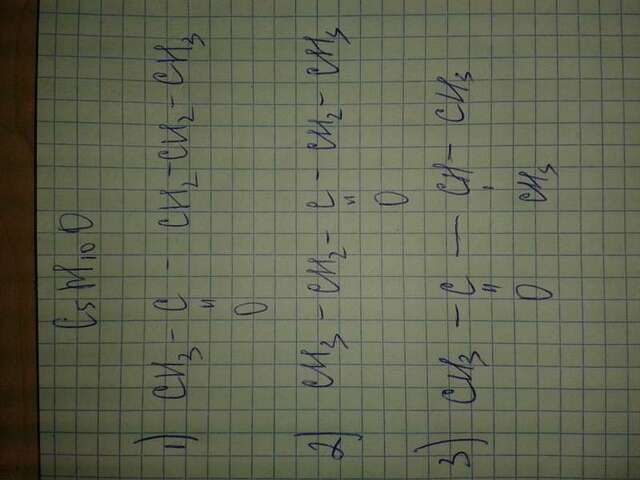 C5H10O
1) CH3 - C - CH2 - CH2 - CH3
"
O
2) CH3 - CH2 - C - CH2 - CH3
"
O
3) CH3 - C - CH - CH3
" '
O CH3